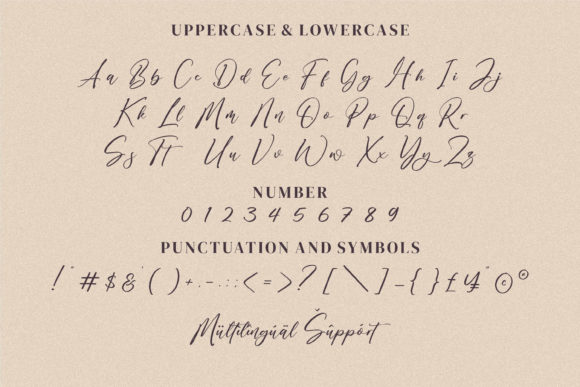 UPPERCASE & LOWERCASE
Aa Bb Cc Dd Ee Ff Gg Hh Ii Jj
Kk Ll Mm Nn Oo Pp Qq Rr
Ss Tt Uu Vv Ww Xx Yy Zz
NUMBER
0 1 2 3 4 5 6 7 8 9
PUNCTUATION AND SYMBOLS
! " # $ & ' ( ) + , - . : ; < = > ? [ \ ] _ { } £ ¥ " © °
Mültilingúäl Šûppórt